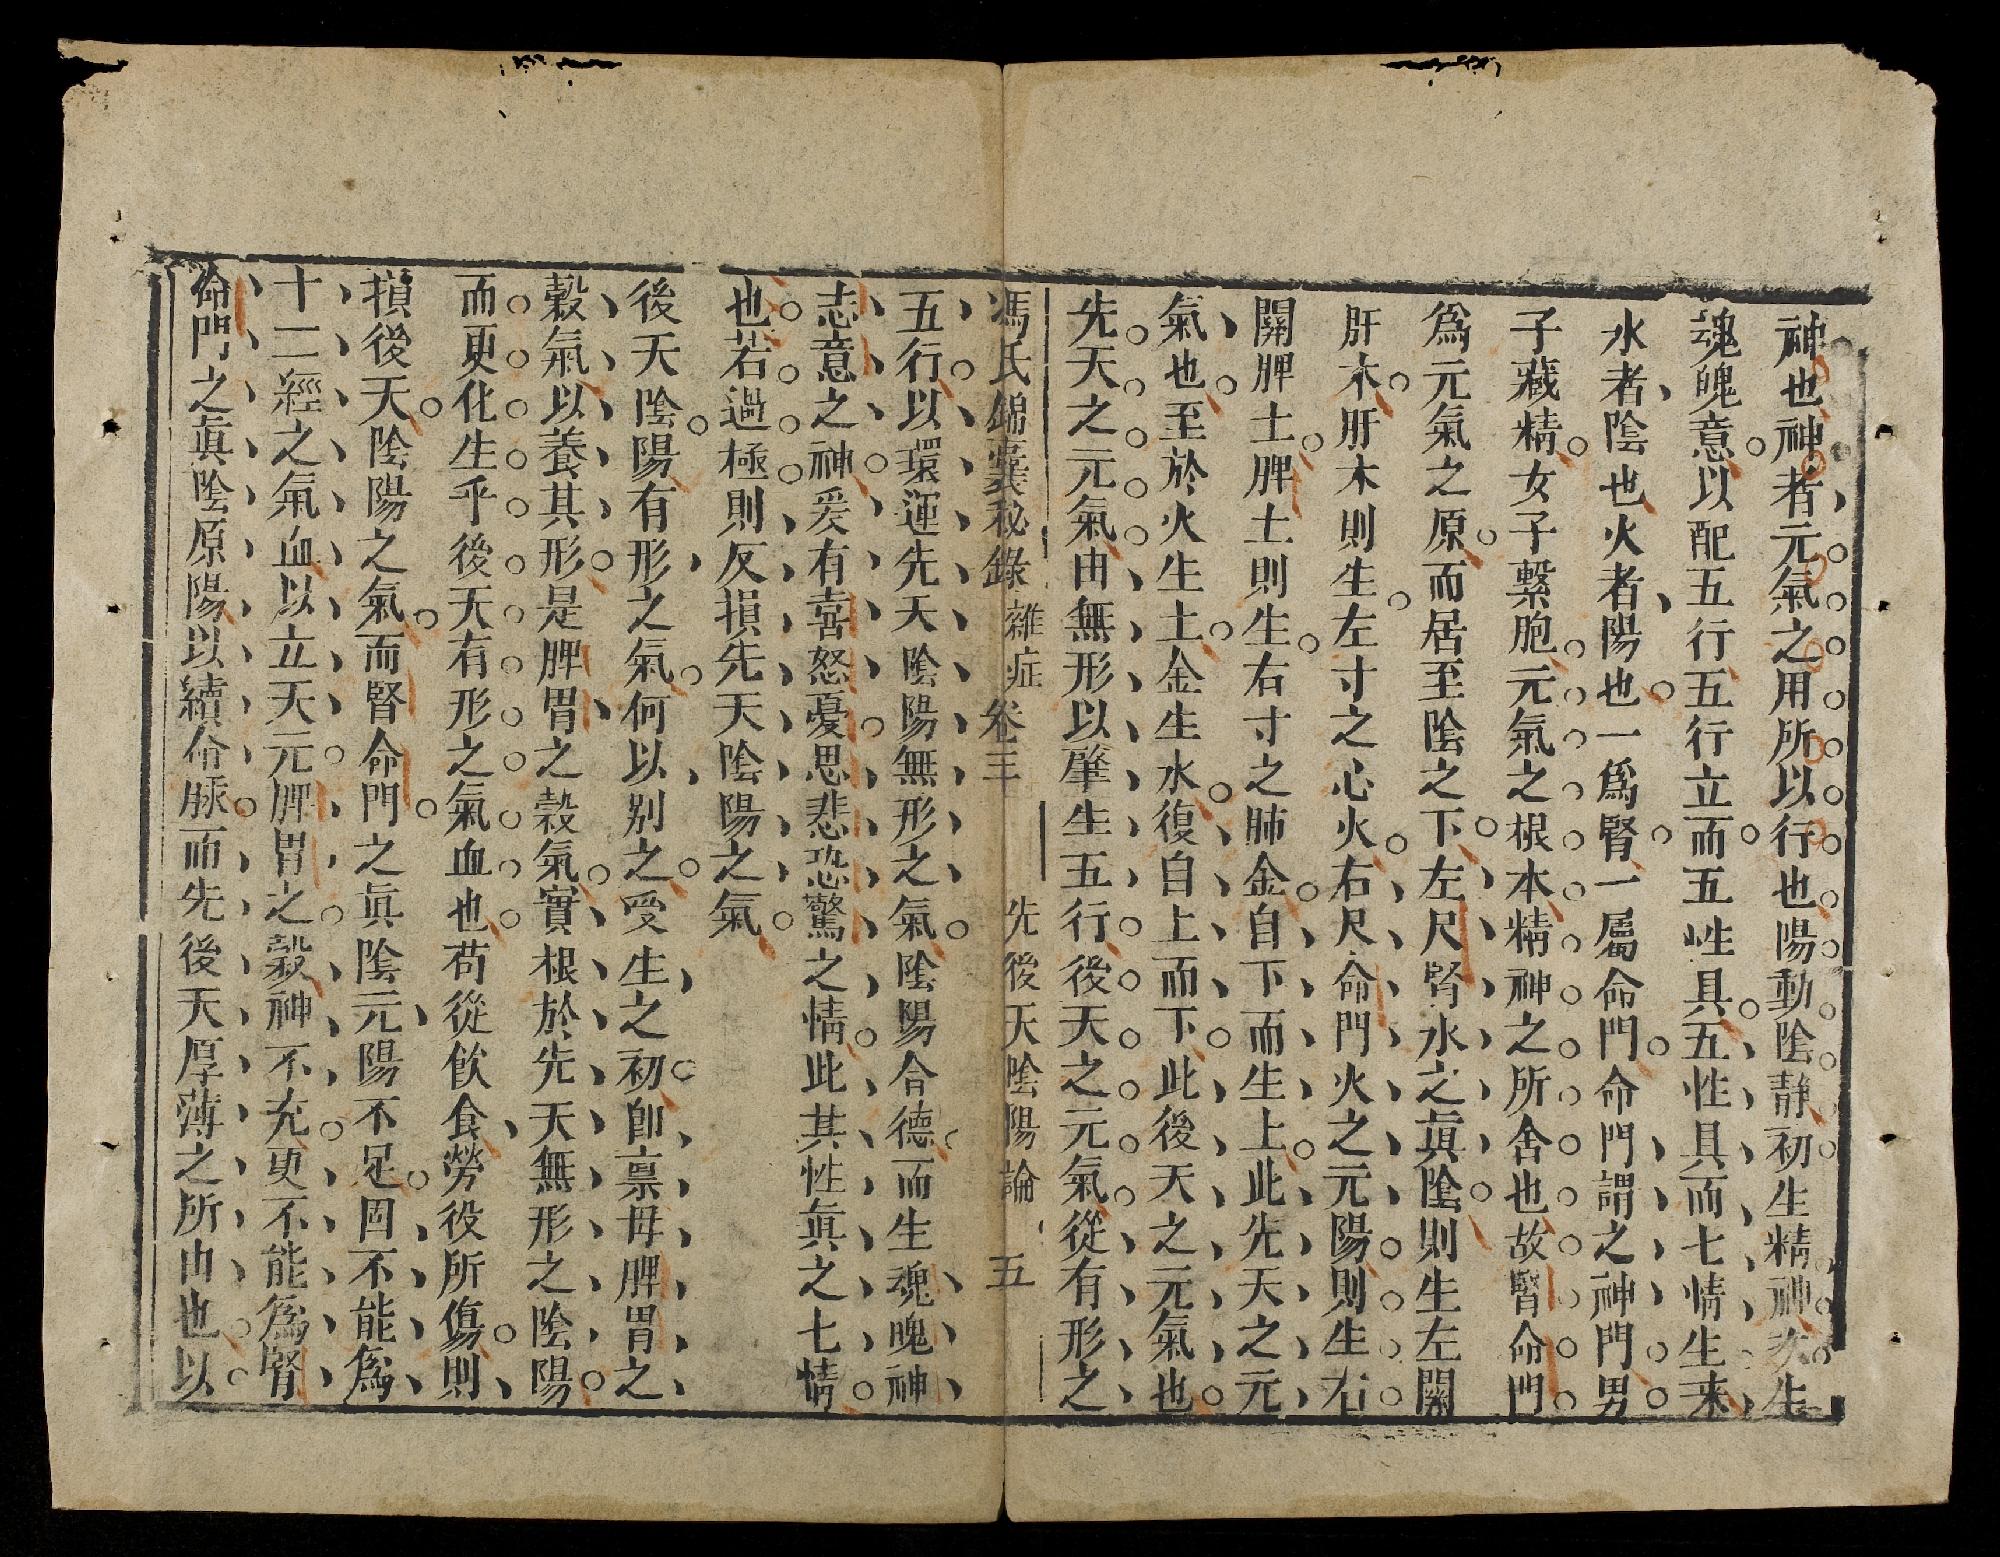 神也神者元氣之用所以行也陽動陰靜初生精神次生
魂魄意以配五行五行立而五性具五性具而七情生來
水者陰也火者陽也一爲腎一屬命門命門謂之神門男
子藏精女子繫胞元氣之根本精神之所舍也故腎命門
爲元氣之原而居至陰之下左尺腎水之眞陰則生左關
肝木肝木則生左寸之心火右尺命門火之元陽則生右
關脾土脾土則生右寸之肺金自下而生上此先天之元
氣也至於火生土金生水復自上而下此後天之元氣也
先天之元氣由無形以肇生五行後天之元氣從有形之
馮氏錦囊秘錄 雜症 卷三 先後天陰陽論 五
五行以環運先天陰陽無形之氣陰陽合德而生魂魄神
志意之神爰有喜怒憂思悲恐驚之情此其性眞之七情
也若過極則反損先天陰陽之氣
後天陰陽有形之氣何以別之受生之初卽禀母脾胃之
穀氣以養其形是脾胃之穀氣實根於先天無形之陰陽
而更化生乎後天有形之氣血也苟從飮食勞役所傷則
損後天陰陽之氣而腎命門之眞陰元陽不足固不能爲
十二經之氣血以立天元脾胃之穀神不充更不能爲腎
命門之眞陰原陽以續命脈而先後天厚薄之所由也以